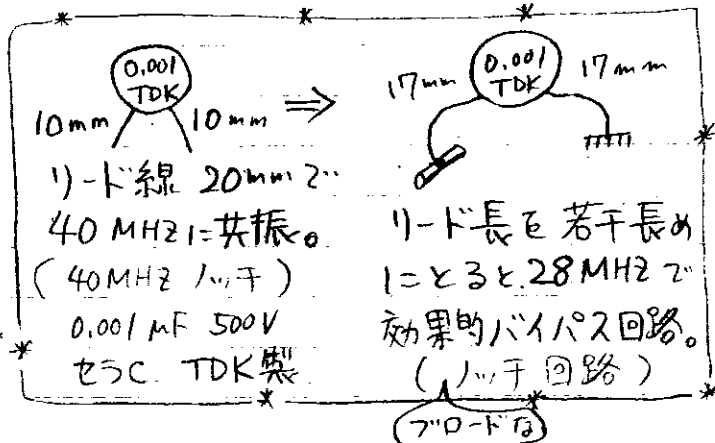 0.001
TDK
10mm
10mm
⇒
リード線 20mmで
40MHzに共振。
(40MHzノッチ)
0.001μF 500V
セラC TDK製
17mm
0.001
TDK
17mm
リード長を若干長め
にとると.28MHzで
効果的バイパス回路。
(ノッチ回路)
ブロードな